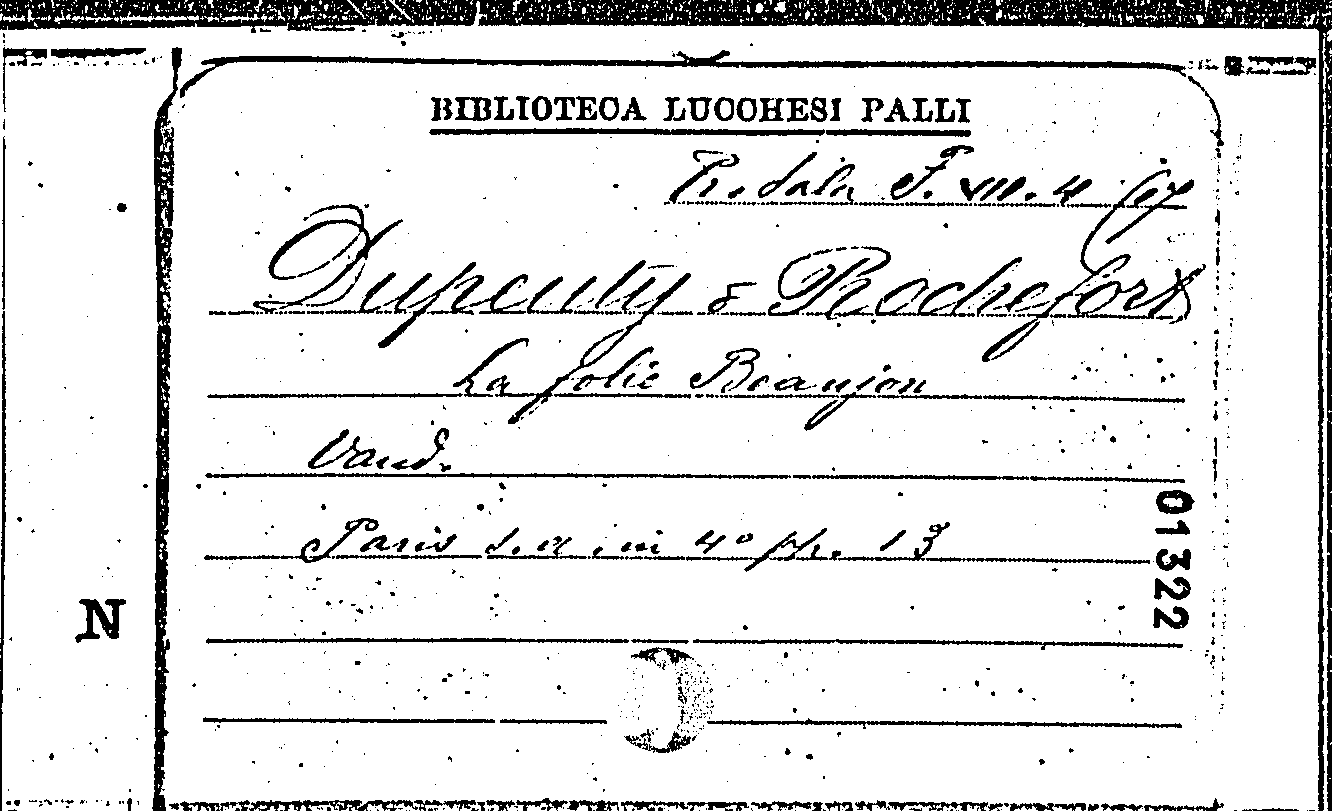 BIBLIOTECA LUCCHESI PALLI
Pr. Sala F. VIII. 4 (67
Dupeuty & Rochefort
La folie Beaujon
Vaud.
Paris s. a. in 4° pp. 13
01322
N